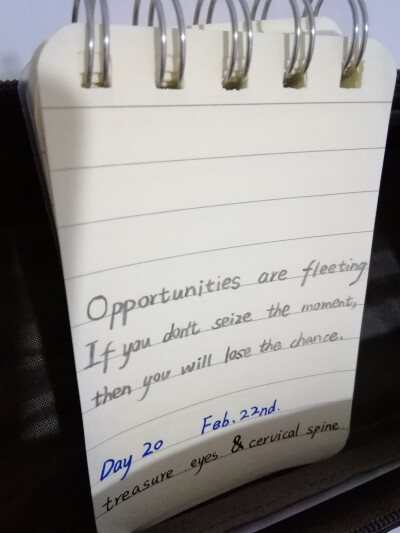 Opportunities are fleeting
If you don't seize the moment,
then you will lose the chance.
Day 20 Feb. 22nd.
treasure eyes & cervical spine